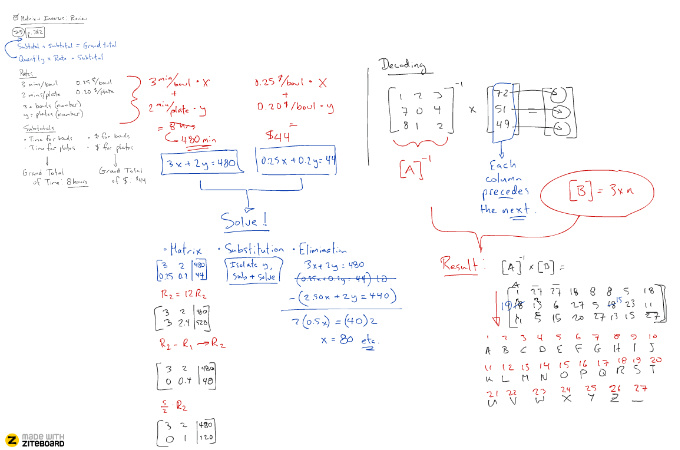 Matrix Inverses Review
Subtotal + subtotal = Grand total
Quantity × Rate = Subtotal
Rates
3 min/bowl 0.25 $/bowl
2 mins/plate 0.20 $/plate
x = bowls (number)
y = plates (number)
Subtotals
• Time for bowls - $ for bowls
• Time for plates - $ for plates
Grand Total
of Time: 8 hours
Grand Total
of $: $44
3 min/bowl • x
+
2 min/plate • y
= 8 hrs
480 min
3x + 2y = 480
0.25 $/bowl • x
+
0.20 $/bowl • y
=
$44
0.25x + 0.2y = 44
Solve!
• Matrix • Substitution • Elimination
3 2 480
0.25 0.2 44
R₂ = 12R₂
3 2 480
3 2.4 520
R₂ - R₁ → R₂
3 2 480
0 0.4 48
5/2 R₂
3 2 480
0 1 120
Isolate y,
sub + solve
3x + 2y = 480
(0.25x + 0.2y = 44) 10
-(2.50x + 2y = 440)
2(0.5x) = (40)2
x = 80 etc.
Decoding
1 2 3
7 0 4
8 1 2
-1
×
72
51
49
=
[A]⁻¹
Each
column
precedes
the next.
[B] = 3×n
Result: [A]⁻¹ × [B] =
1 27 27 18 8 8 5 18
6 27 5 18 23 11
5 15 20 27 13 15 27
1 2 3 4 5 6 7 8 9 10
A B C D E F G H I J
11 12 13 14 15 16 17 18 19 20
K L M N O P Q R S T
21 22 23 24 25 26 27
U V W X Y Z _
MADE WITH
ZITEBOARD